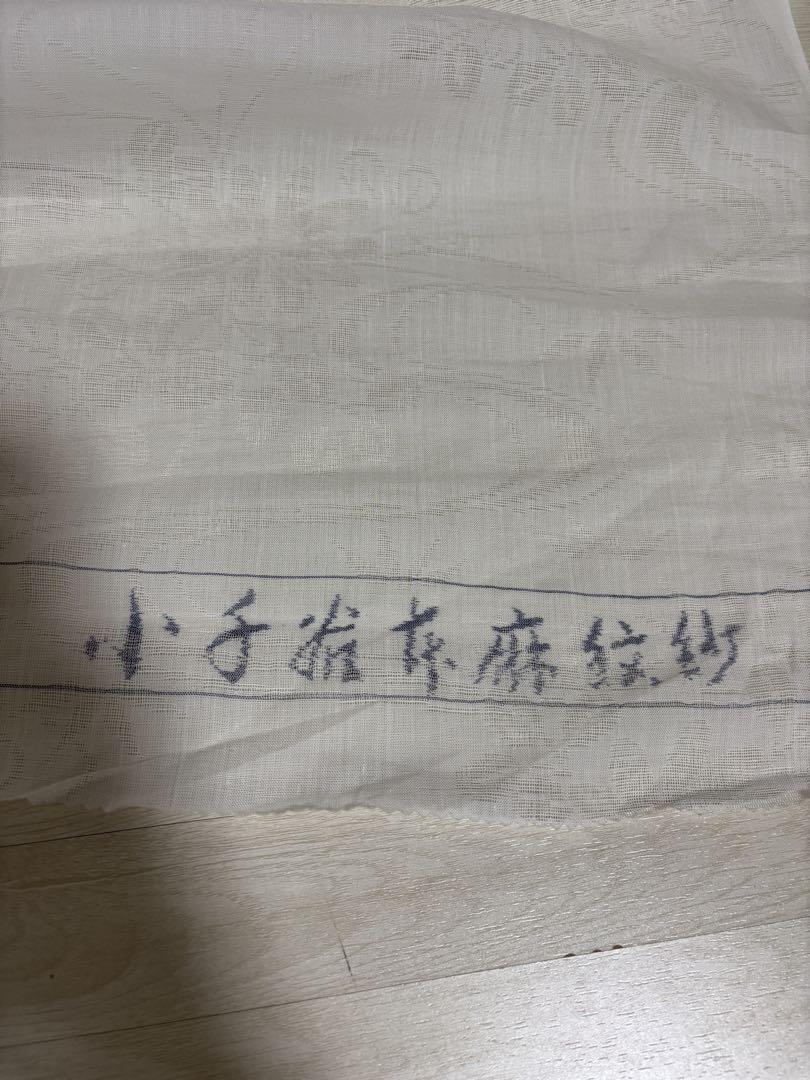 小千雅本麻紋紗